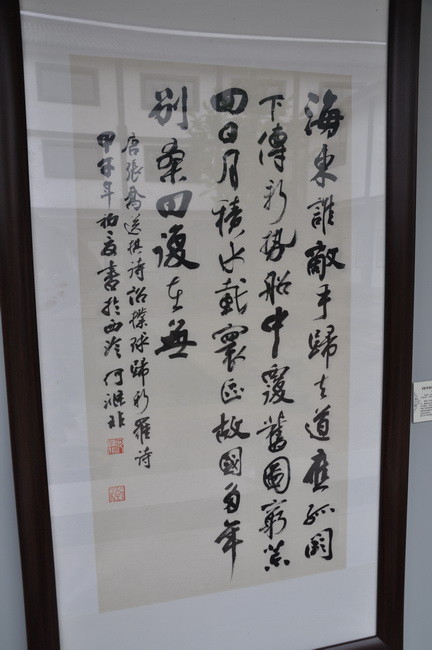 海東誰敵手歸去道應孤闕
下傳新勢船中覆舊圖窮荒
回日月積水載寰區故國多年
別桑田復在無
唐張喬送棋待詔樸球歸新羅詩
甲午年初夏書於西泠何